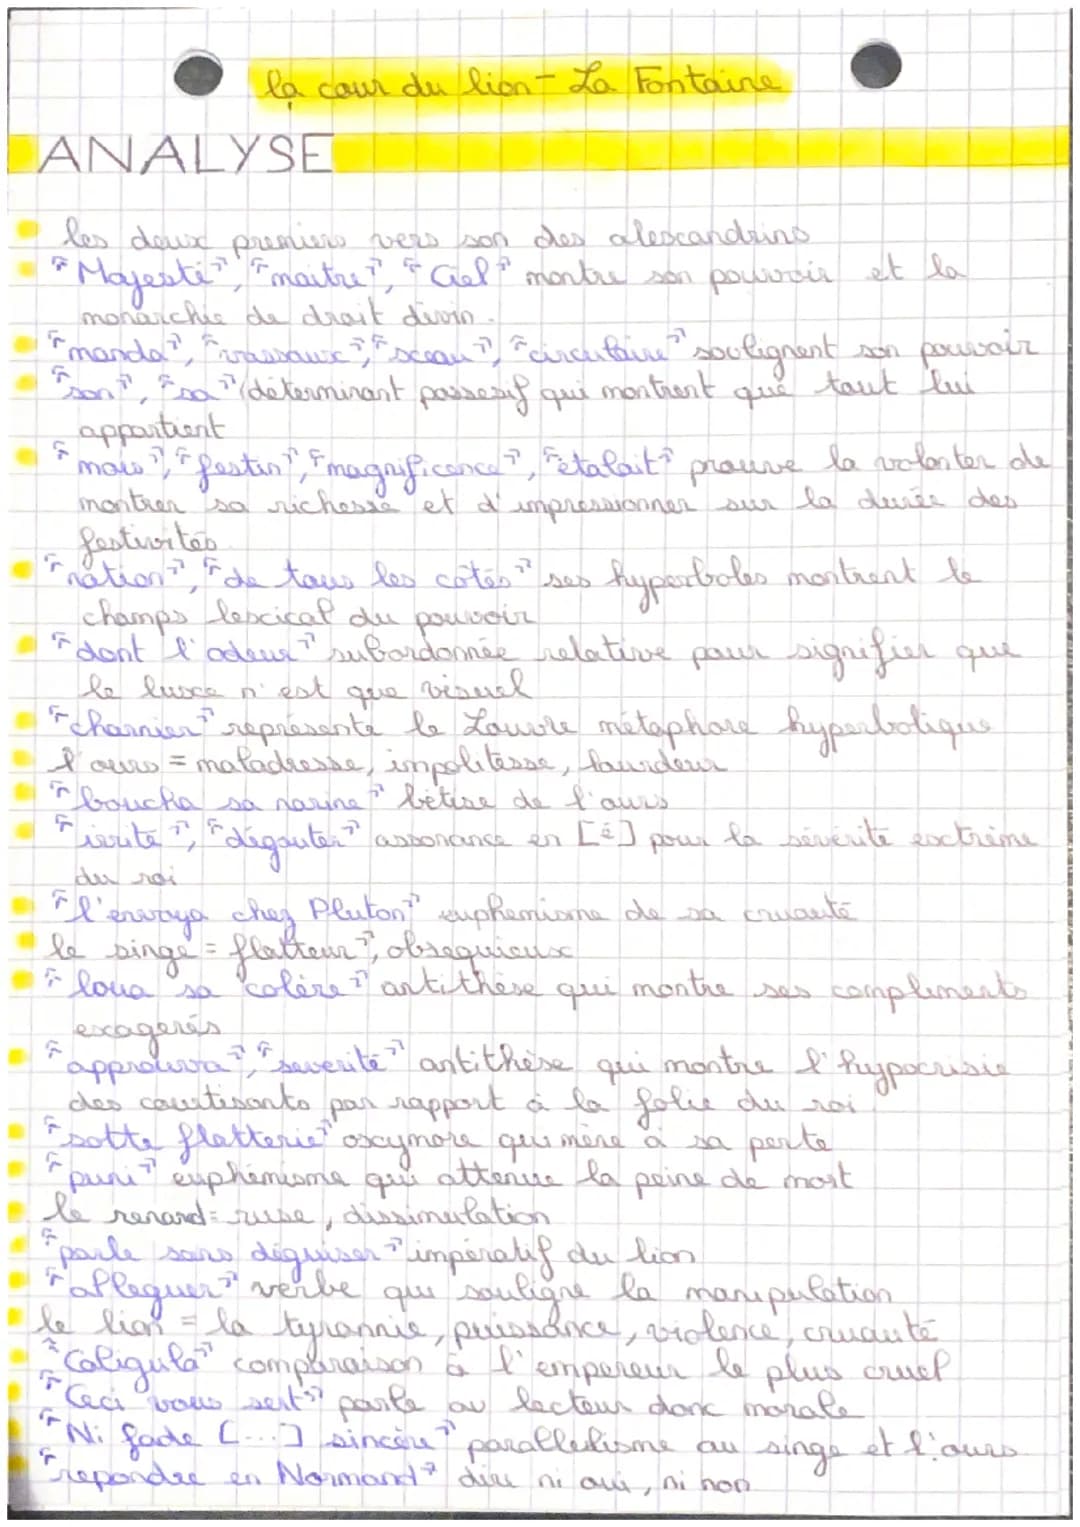 la cour du lion - La Fontaine
ANALYSE
les deux premiers vers son des alexandrins
"Majesté", "maitre", "Ciel" montre son pouvoir et la
monarchie de droit divin.
"manda", "vassaux", "sceau", "circulaire" soulignent son pouvoir
"son", "sa" (déterminant possesif qui montrent que tout lui
appartient
"mois", "festin", "magnificence", "étalait" prouve la volonter de
montrer sa richesse et d'impressionner sur la durée des
festivités
"nation", "de tous les côtés" ses hyperboles montrent le
champs lexical du pouvoir
"dont l'odeur" subordonnée relative pour signifier que
le luxe n'est que visuel
"charnier" représente le Louvre métaphore hyperbolique
l'ours = maladresse, impolitesse, lourdeur
"boucha sa narine" bêtise de l'ours
"irrité", "dégouter" assonance en [é] pour la sévérité extrême
du roi
"l'envoya chez Pluton" euphémisme de sa cruauté
le singe = flatteur", obsequieux
"loua sa colère" antithèse qui montre ses compliments
exagerés
"approuva", "severité" antithèse qui montre l'hypocrisie
des courtisants par rapport à la folie du roi
"sotte flatterie" oxymore qui mène à sa perte
"puni" euphémisme qui attenue la peine de mort
le renard = ruse, dissimulation
"parle sans déguiser" impératif du lion
"alleguer" verbe qui souligne la manipulation
le lion = la tyrannie, puissance, violence, cruauté
"Caligula" comparaison à l'empereur le plus cruel
"Ceci vous sert" parle au lecteur donc morale
"Ni fade [...] sincère" parallelisme au singe et l'ours
"repondre en Normand" dire ni oui, ni non